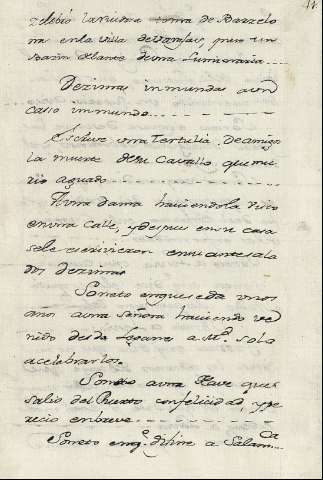 zelebró la Ruidosa toma de Barzelo
na en la villa de Versays, puso un
Balcon delante de una Luminaria
Dezimas in mundas a un
casso in mundo
Escrive una Tertulia De amigo
la muerte de su Cavallo que mu
rio aguado
A una dama haviendola visto
en una Calle, y despues en su casa
se le escrivieron en su antesala
dos dezimas
Soneto en que se da unos
años a una Señora haviendo ve
nido desde a M.d solo
a celebrarlos.
Soneto a una Nave que
salio del Puerto con felicidad, y pe
recio en breve
Soneto enq.e define a Salam
ca